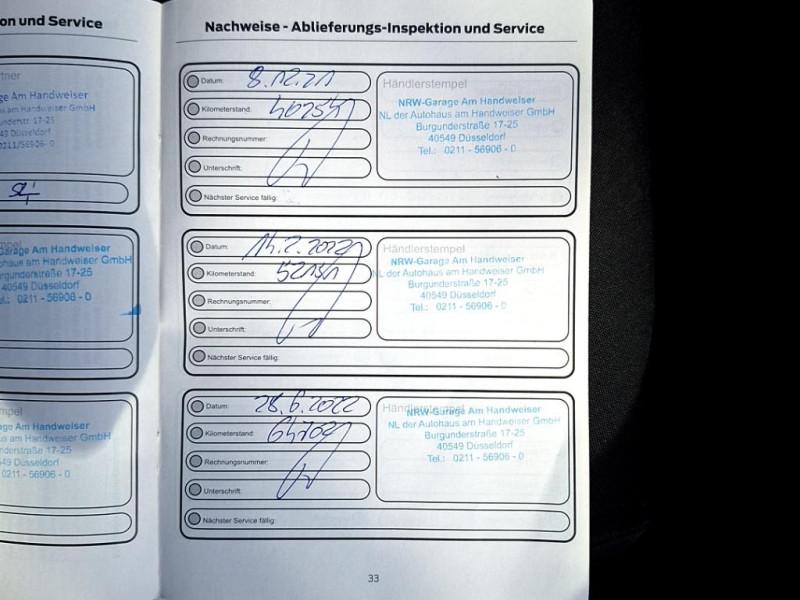 on und Service
rtner
ge Am Handweiser
us am Handweiser GmbH
understr. 17-25
549 Düsseldorf
0211/56906- 0
mpel
Garage Am Handweiser
ohaus am Handweiser GmbH
rgunderstraße 17-25
40549 Düsseldorf
el.: 0211 - 56906 - 0
mpel
Garage Am Handweiser
us am Handweiser GmbH
nderstraße 17-25
549 Düsseldorf
0211 - 56906 - 0
Nachweise - Ablieferungs-Inspektion und Service
Datum: 8.12.21
Kilometerstand:
Rechnungsnummer:
Unterschrift:
Nächster Service fällig:
Händlerstempel
NRW-Garage Am Handweiser
NL der Autohaus am Handweiser GmbH
Burgunderstraße 17-25
40549 Düsseldorf
Tel.: 0211 - 56906 - 0
Datum: 14.2.2022
Kilometerstand:
Rechnungsnummer:
Unterschrift:
Nächster Service fällig:
Händlerstempel
NRW-Garage Am Handweiser
NL der Autohaus am Handweiser GmbH
Burgunderstraße 17-25
40549 Düsseldorf
Tel.: 0211 - 56906 - 0
Datum: 28.9.2022
Kilometerstand:
Rechnungsnummer:
Unterschrift:
Nächster Service fällig:
Händlerstempel
NRW-Garage Am Handweiser
NL der Autohaus am Handweiser GmbH
Burgunderstraße 17-25
40549 Düsseldorf
Tel.: 0211 - 56906 - 0
33